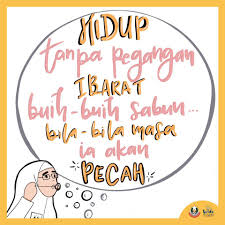 HIDUP
tanpa pegangan
IBARAT
buih-buih sabun...
bila-bila masa
ia akan
PECAH